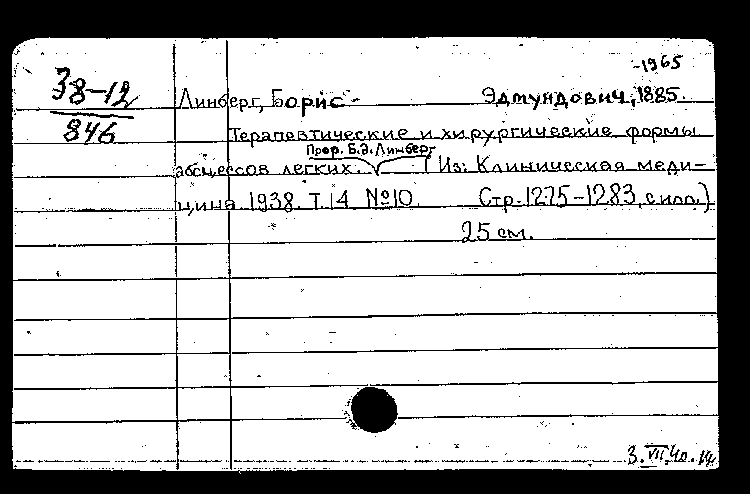 -1965
38-12
846
Линберг, Борис Эдмундович, 1885.
Терапевтические и хирургические формы
Проф. Б.Э. Линберг
абсцессов легких. (Из: Клиническая меди-
цина 1938. Т. 14 №10. Стр. 1275-1283, с илл.)
25 см.
3.VII.40.